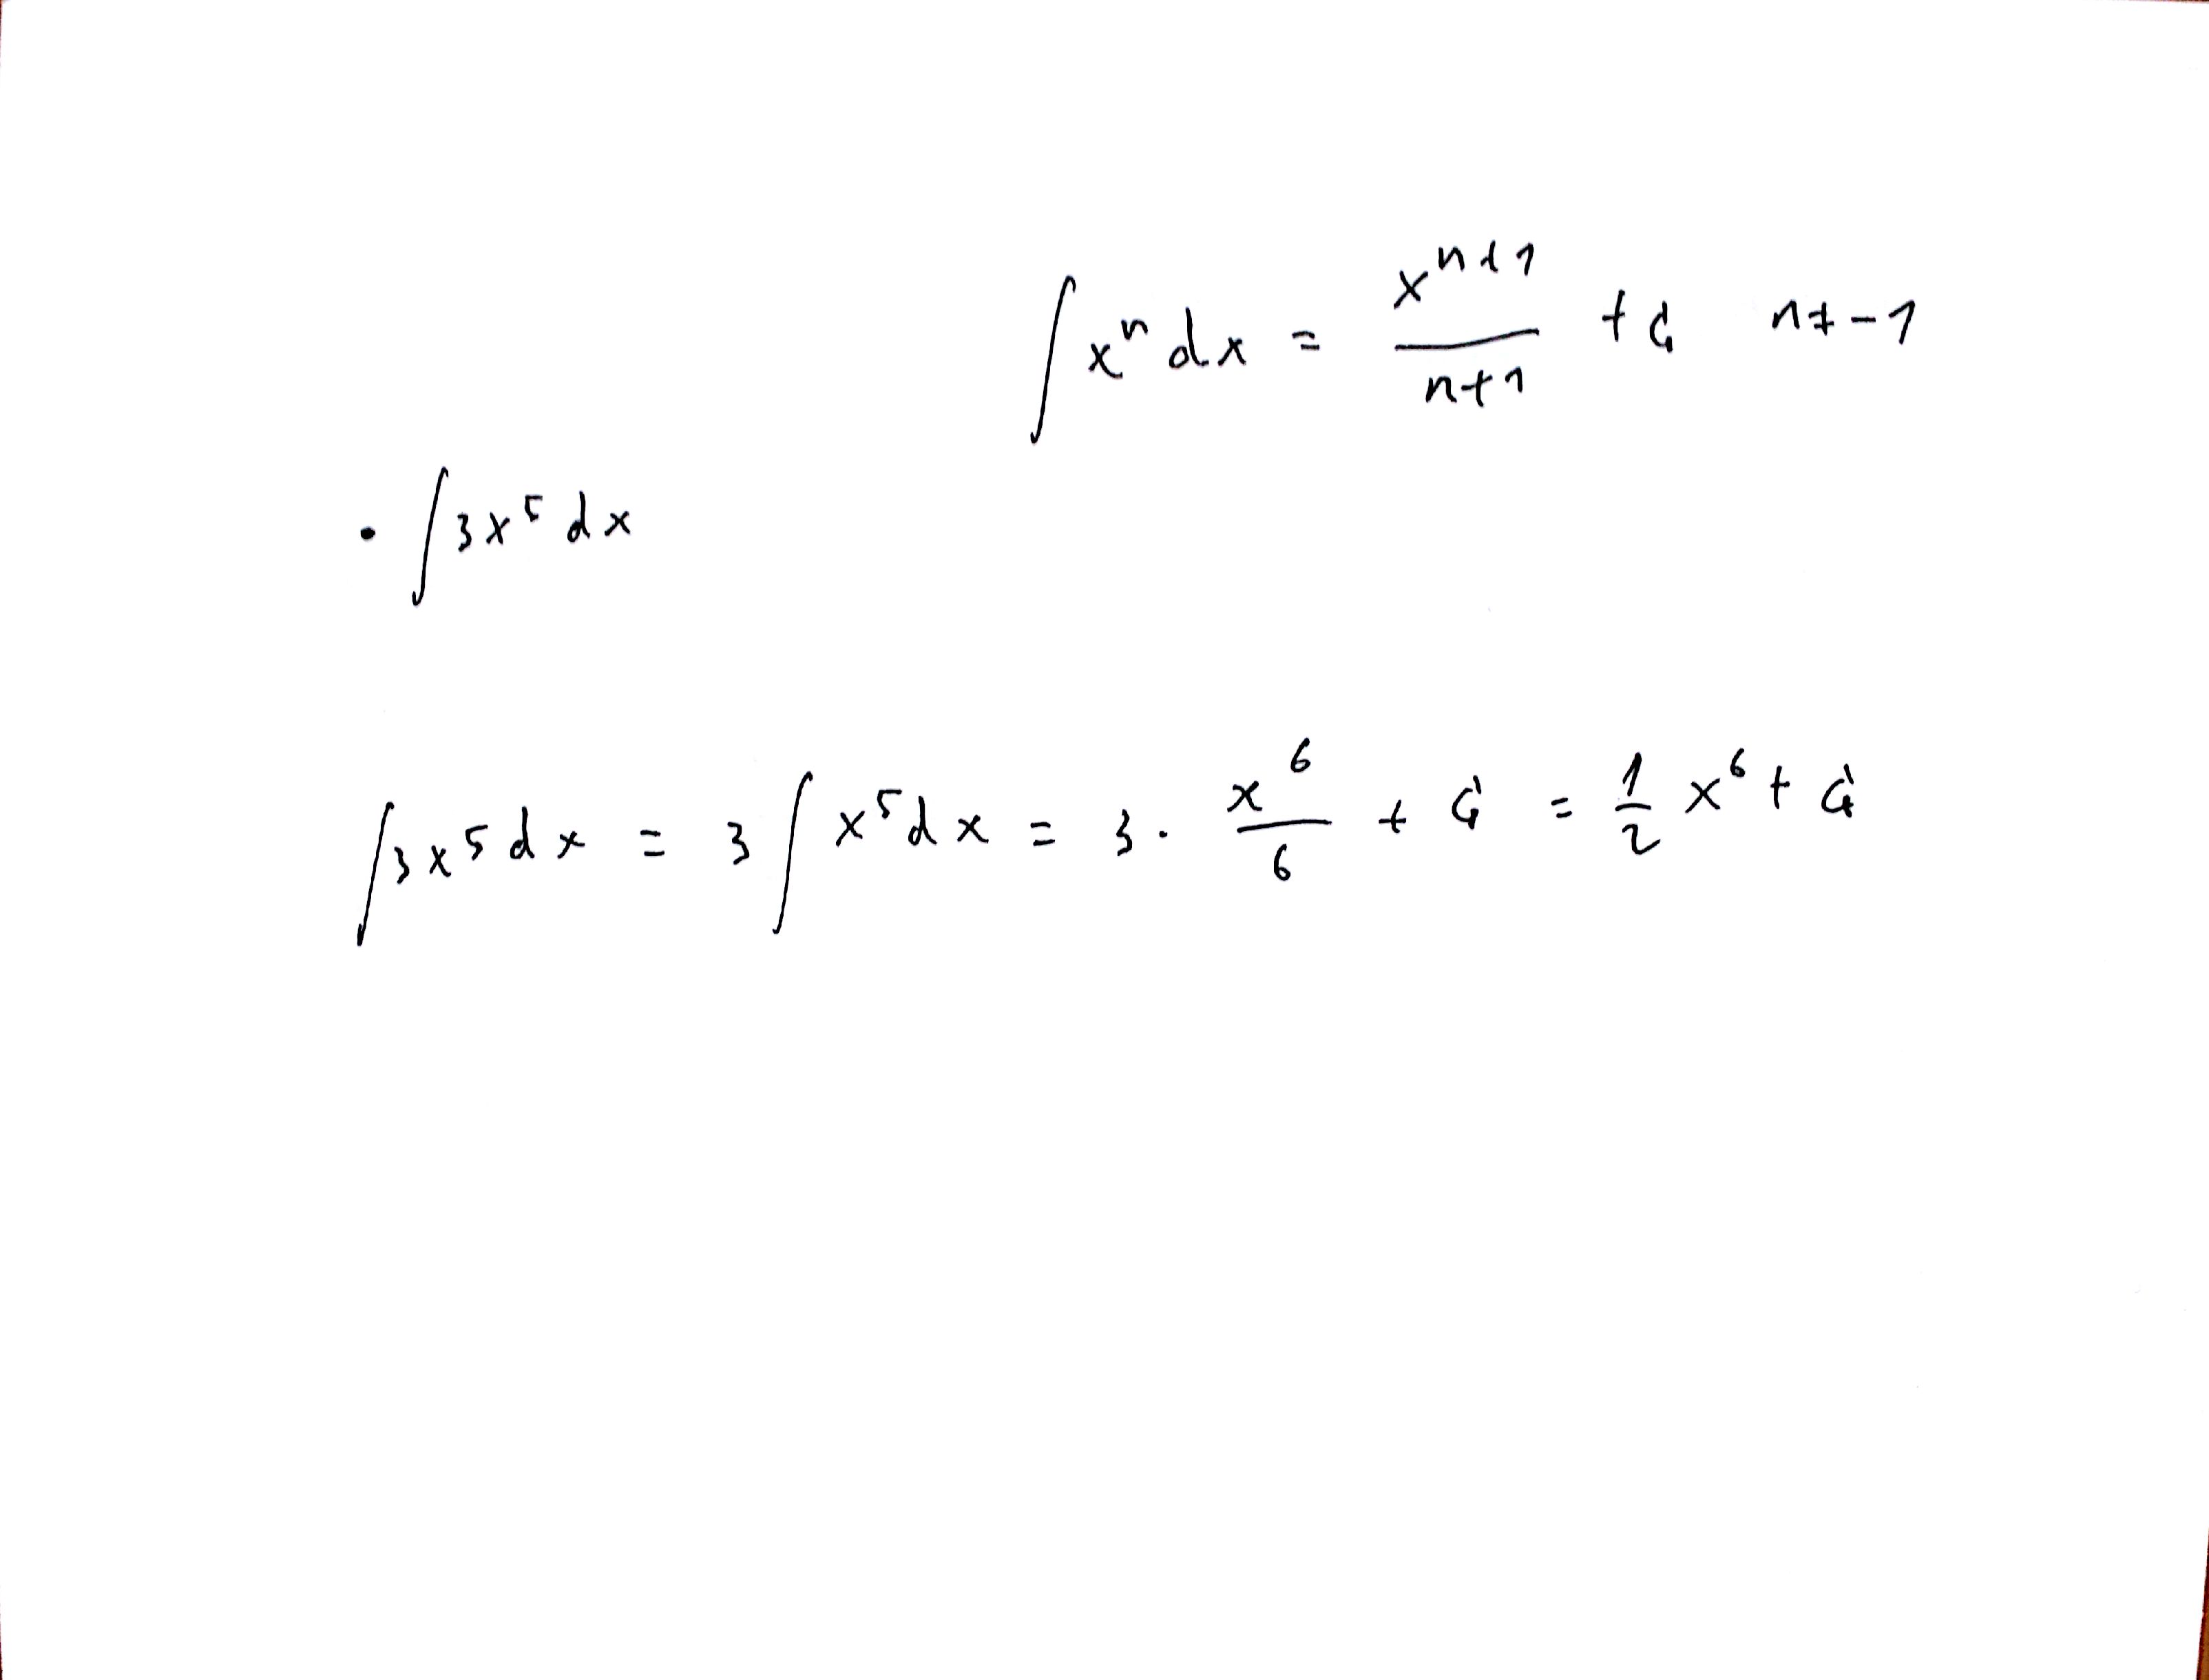 ∫ xⁿ dx = xⁿ⁺¹ / n+1 + C n ≠ -1
• ∫ 3x⁵ dx
∫ 3x⁵ dx = 3 ∫ x⁵ dx = 3 · x⁶ / 6 + C = 1/2 x⁶ + C